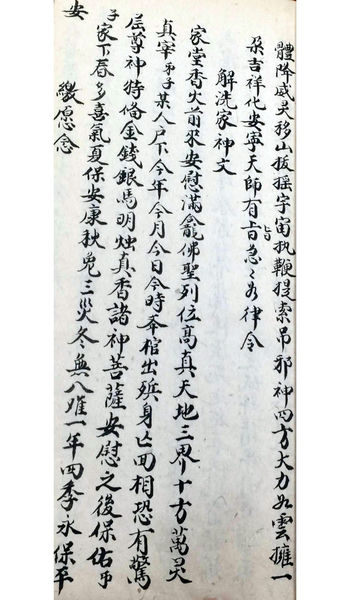 體降威灵移山拔摇宇宙执鞭提索吊邪神四方大力如雲擁一
朵吉祥化安寧天師有旨急〻如律令
旨
解洗家神文
家堂香火前來安慰滿龕佛聖列位高真天地三界十方萬灵
真宰弟子某人戶下今年今月今日今時奉棺出殡身亡回相恐有驚
居尊神特俻金錢銀馬明烛真香諸神菩薩安慰之後保佑弟
子家下春多喜氣夏保安康秋免三災冬無八难一年四季永保平
安
繳愿念